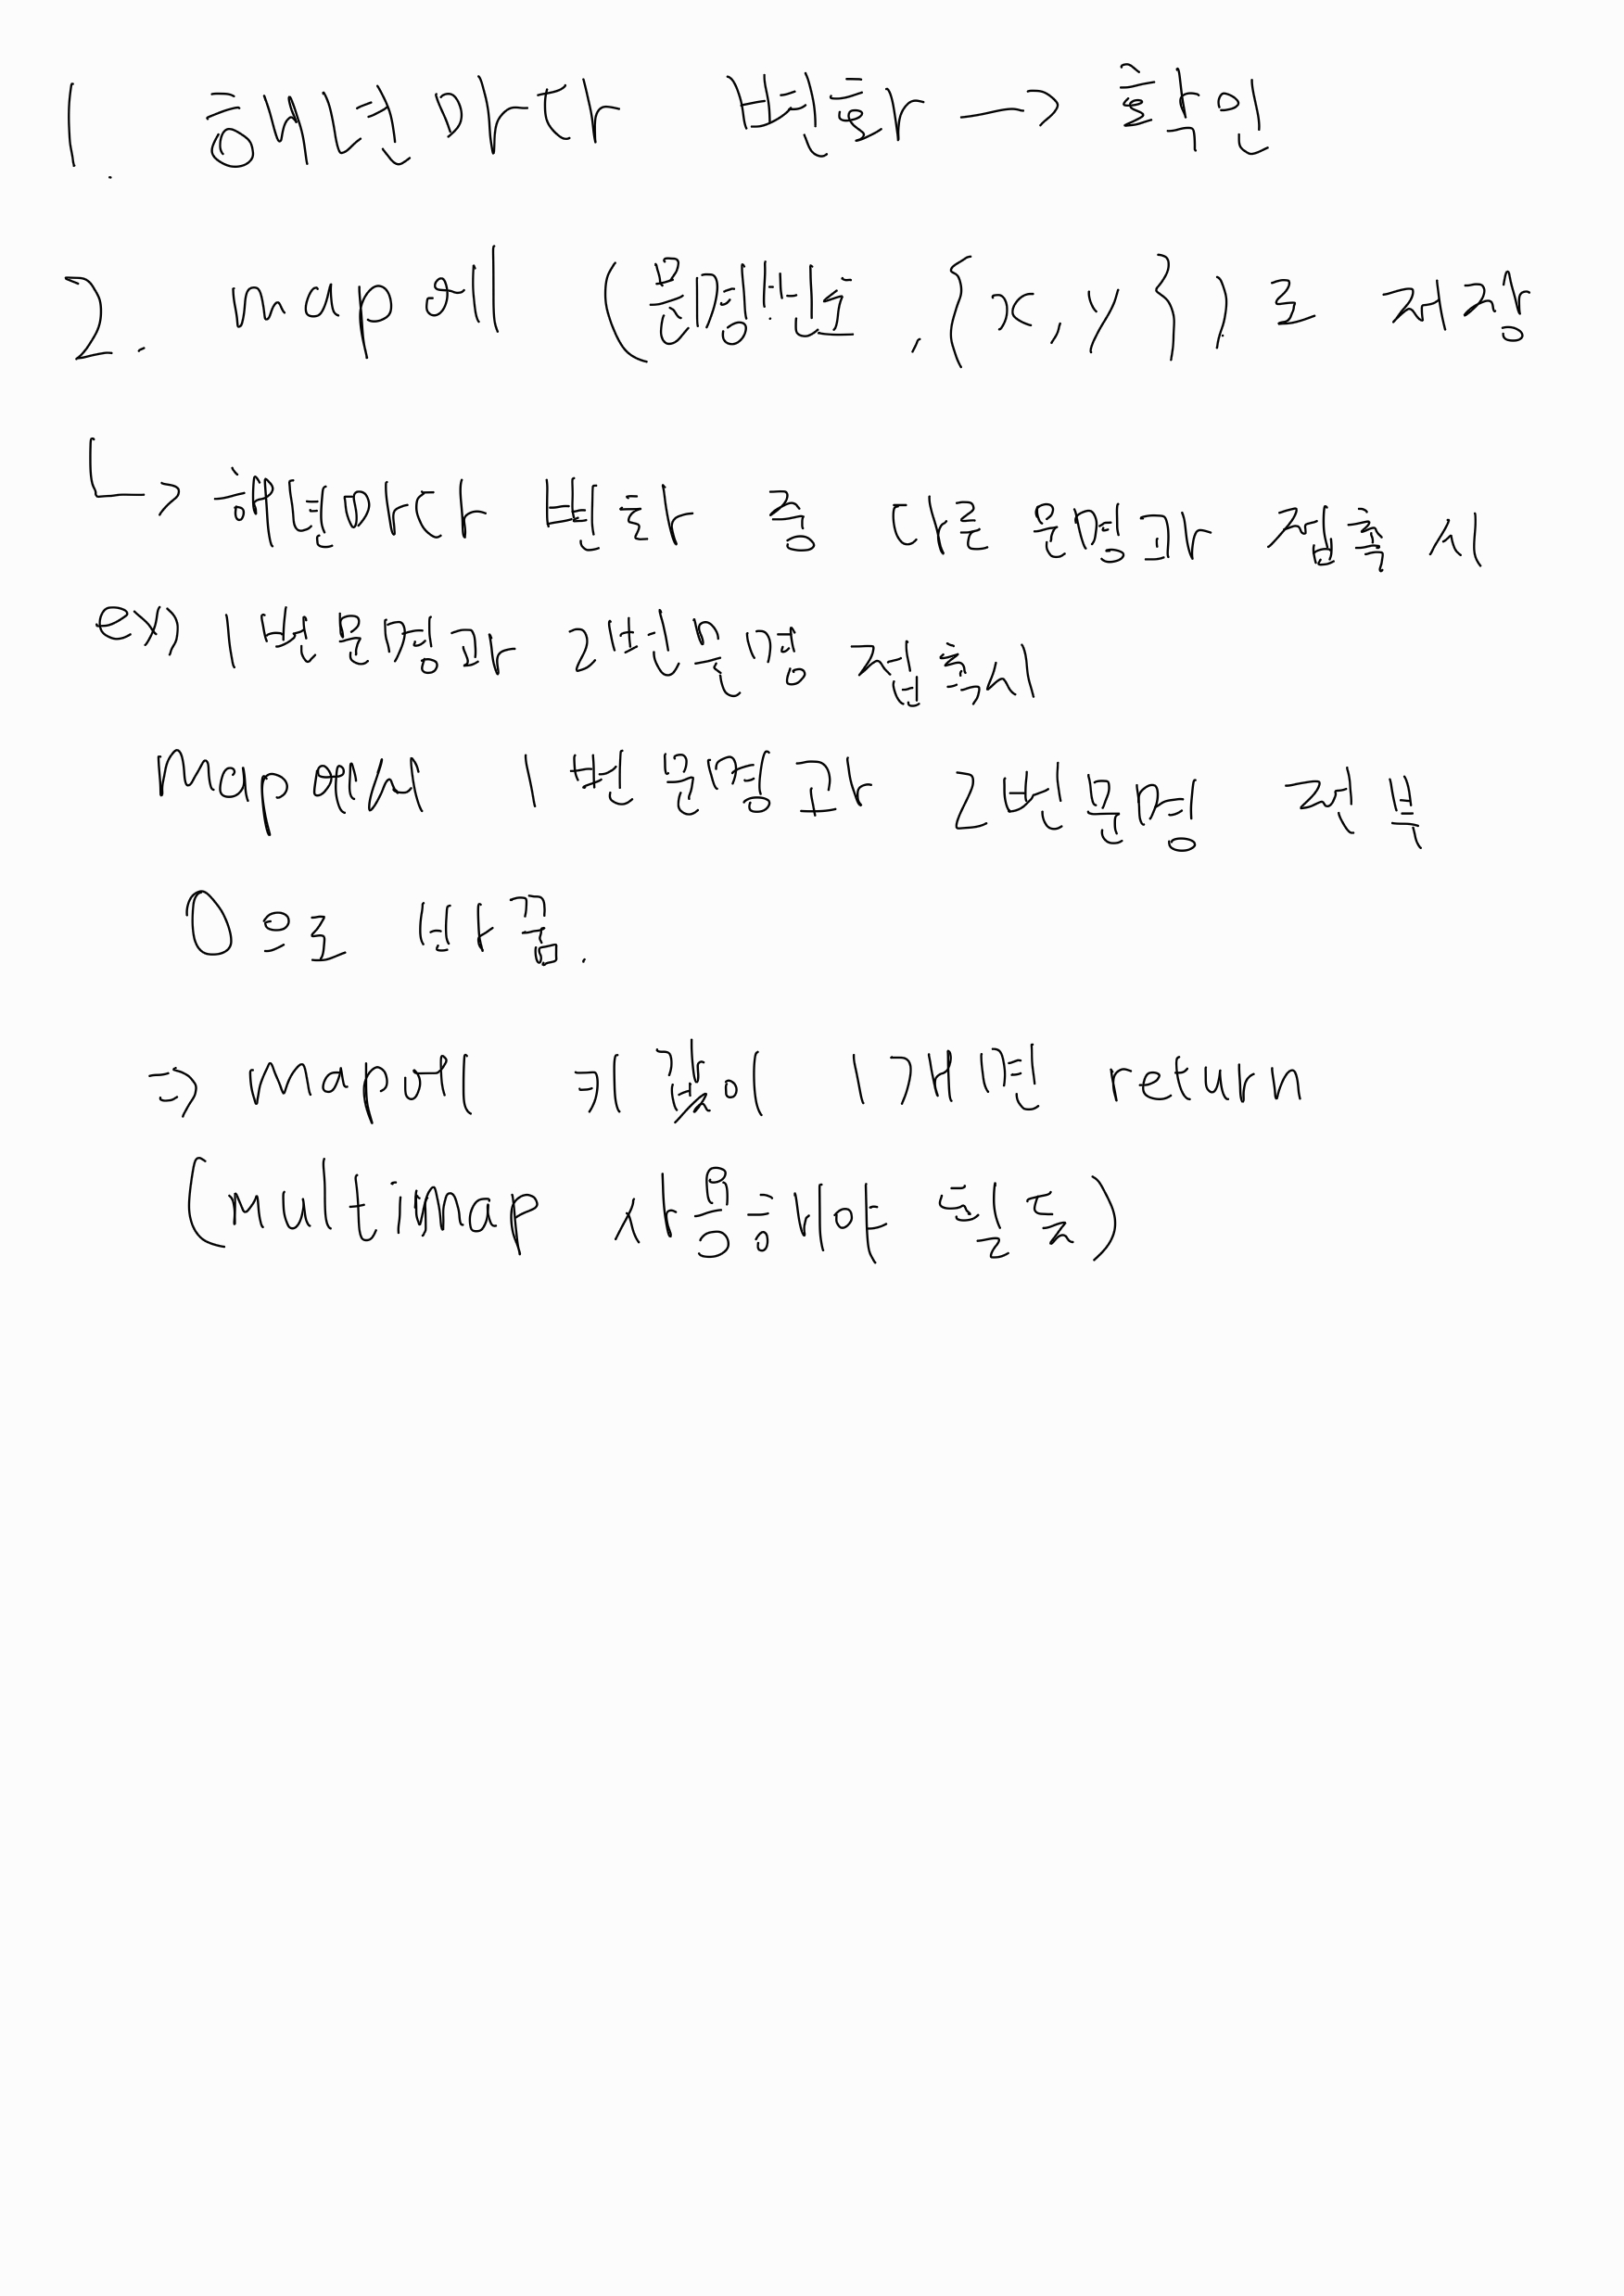 1. 해년마다 변화 → 확인
2. map에 (문명번호, {x, y})로 저장
↳ 해년마다 변화 중 다른 문명과 접촉 시
ex) 1번문명과 2번문명 접촉시
map에서 1번 문명과 2번문명 전부
0으로 바꿈.
⇒ map에 키 값이 1개면 return
(multimap 사용해야 될 듯)